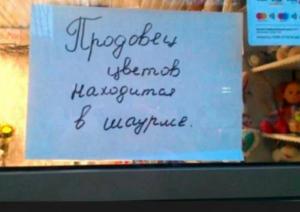 Продовец
цветов
находится
в шаурме.